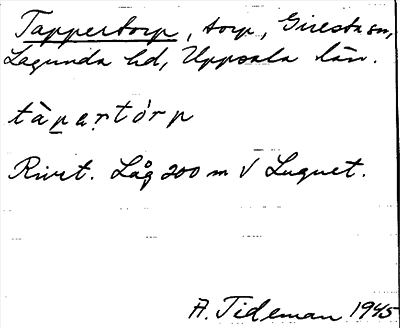 Tappertorp, torp, Giresta sn,
Lagunda hd, Uppsala län.
tàpertórp
Rivet. Låg 200 m V Lugnet.
A. Tideman 1945